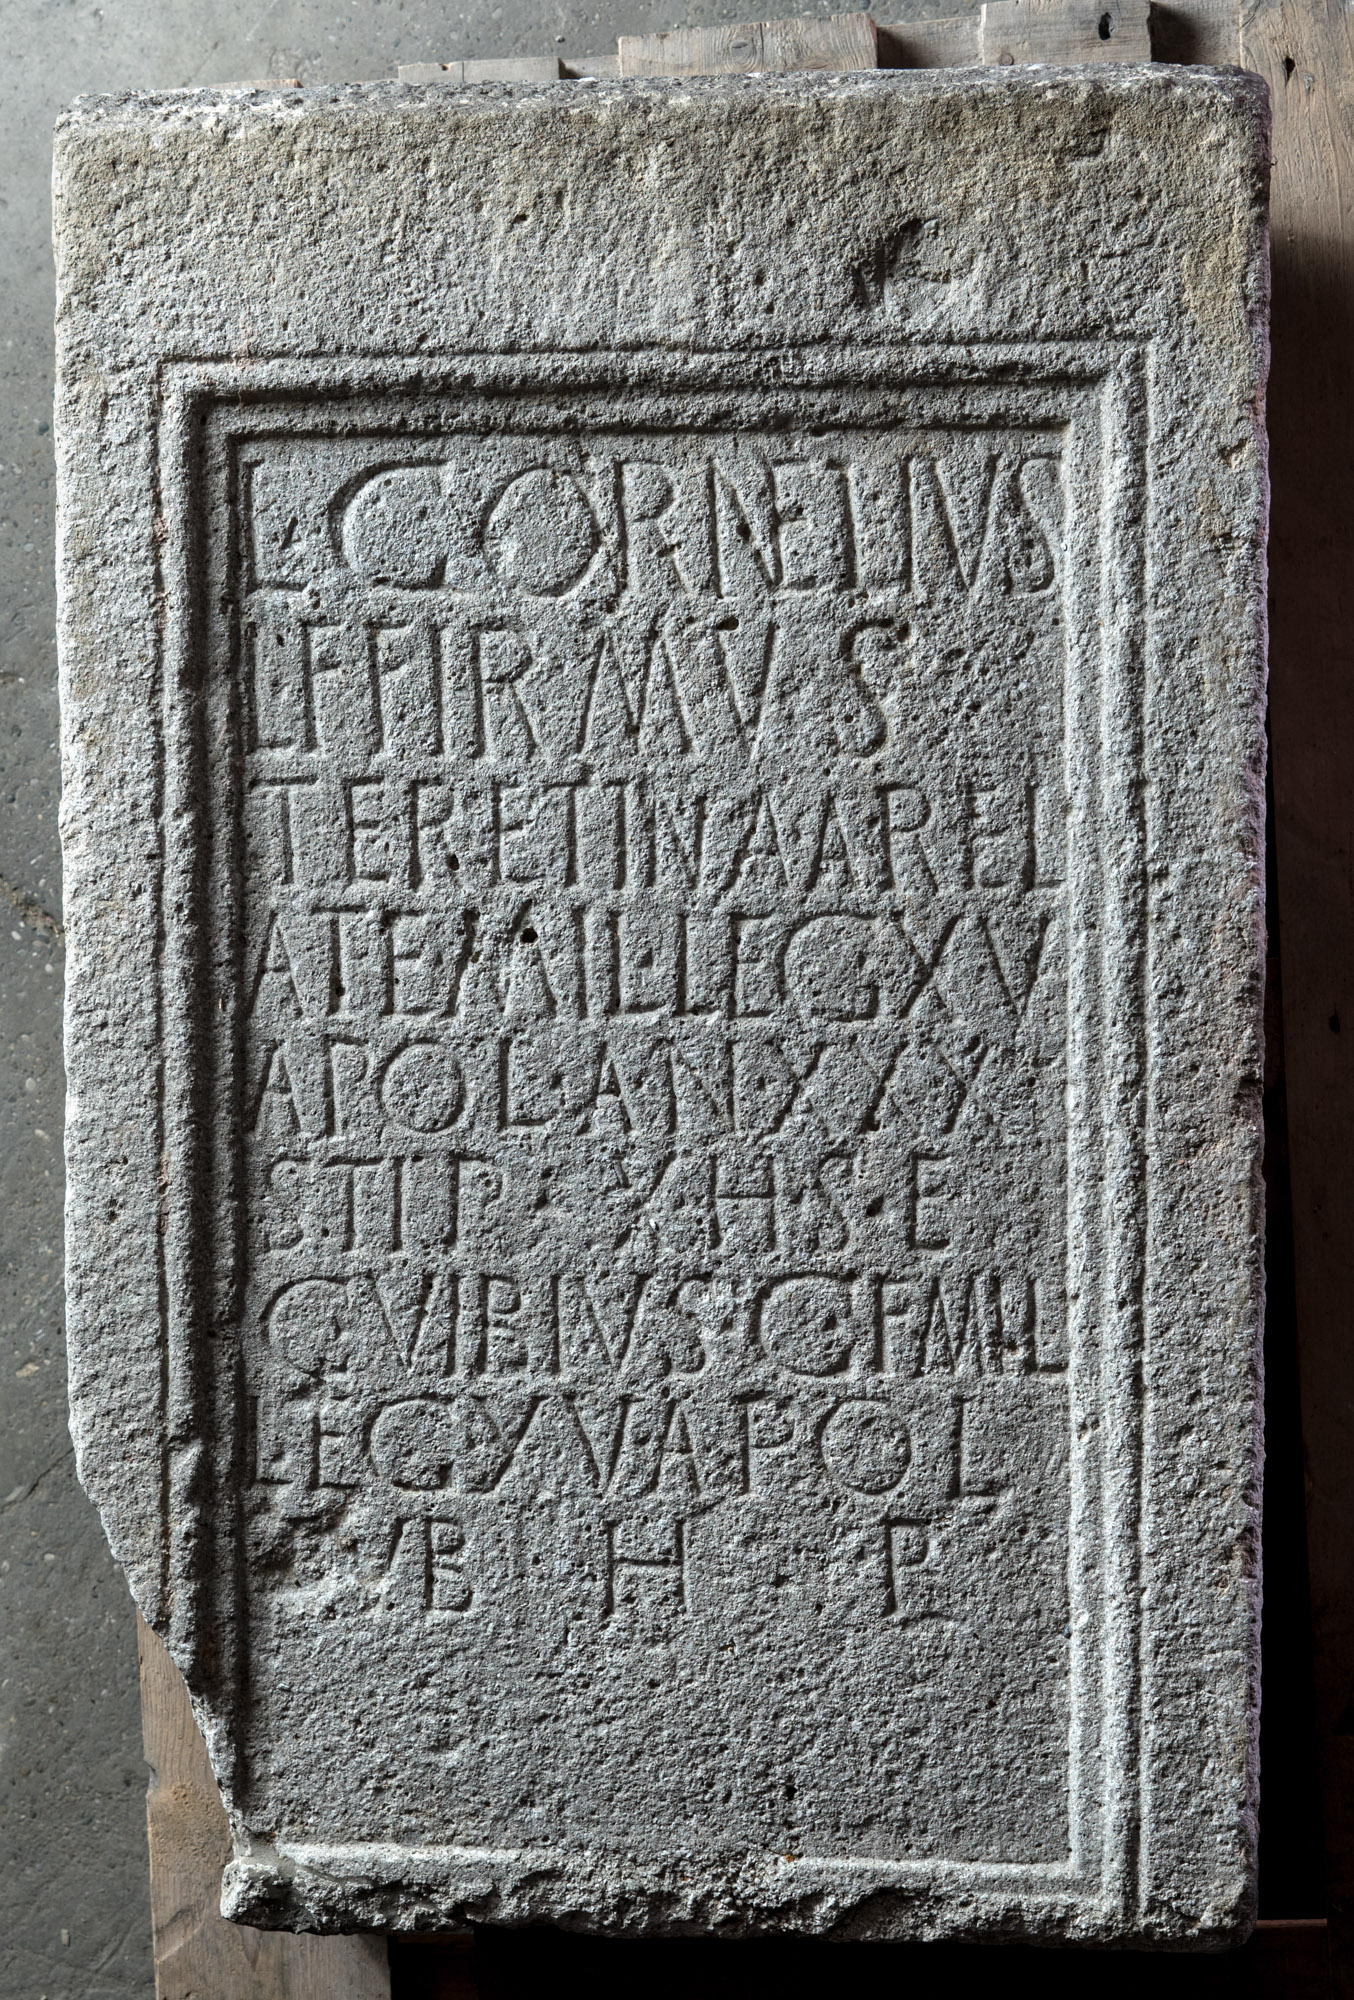 L CORNELIVS
L F FIRMVS
TERETINA AREL
ATE MIL LEG XV
APOL · AN · XXX
STIP · X H · S · E
C VIBIVS · C F MIL
LEG XV APOL
SVB H P